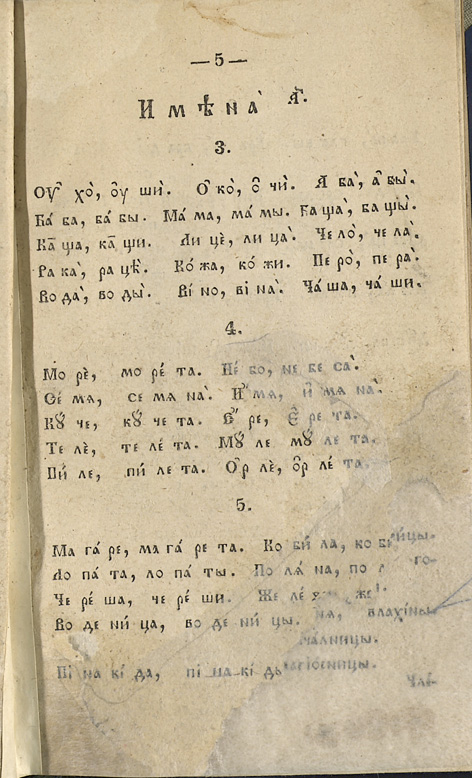 —5—
Имѣна̀ а҃.
3.
Оу҆ хо̀, ѻу шѝ. О҆ ко̀, ѻ҆ чѝ. Я ба̀, а҆ бы̀.
Ба́ ба, ба́ бы. Ма́ ма, ма́ мы. Ба ша̀, ба шы̀.
Ка́ ша, ка́ ши. Ли цѐ, ли ца̀. Че ло̀, че ла̀.
Ра ка̀, ра цѣ̀. Ко́ жа, ко́ жи. Пе ро̀, пе ра̀.
Во да̀, во ды̀. Ві́ но, ві на̀. Ча́ ша, ча́ ши.
4.
Мо рѐ, мо ре́ та. Не́ бо, не бе са̀.
Се́ мя, се мя на̀. И҆́ мя, и҆ мя на̀.
Кꙋ́ че, кꙋ́ че та. ре, ре та.
Те лѐ, те ле́ та. Мꙋ́ ле мꙋ́ ле та.
Пи́ ле, пи́ ле та. Ор лѐ, ѻр ле́ та.
5.
Ма га́ ре, ма га́ ре та. Ко би́ ла, ко би́цы.
Ло па́ та, ло па́ ты. По ля́ на, по
Че ре́ ша, че ре́ ши. Же ле́
Во де ни́ ца, во де ни́ цы. влахі́ны
ча́лницы.
Пі на кі́ да, пі на кі́ ды
Чле́-